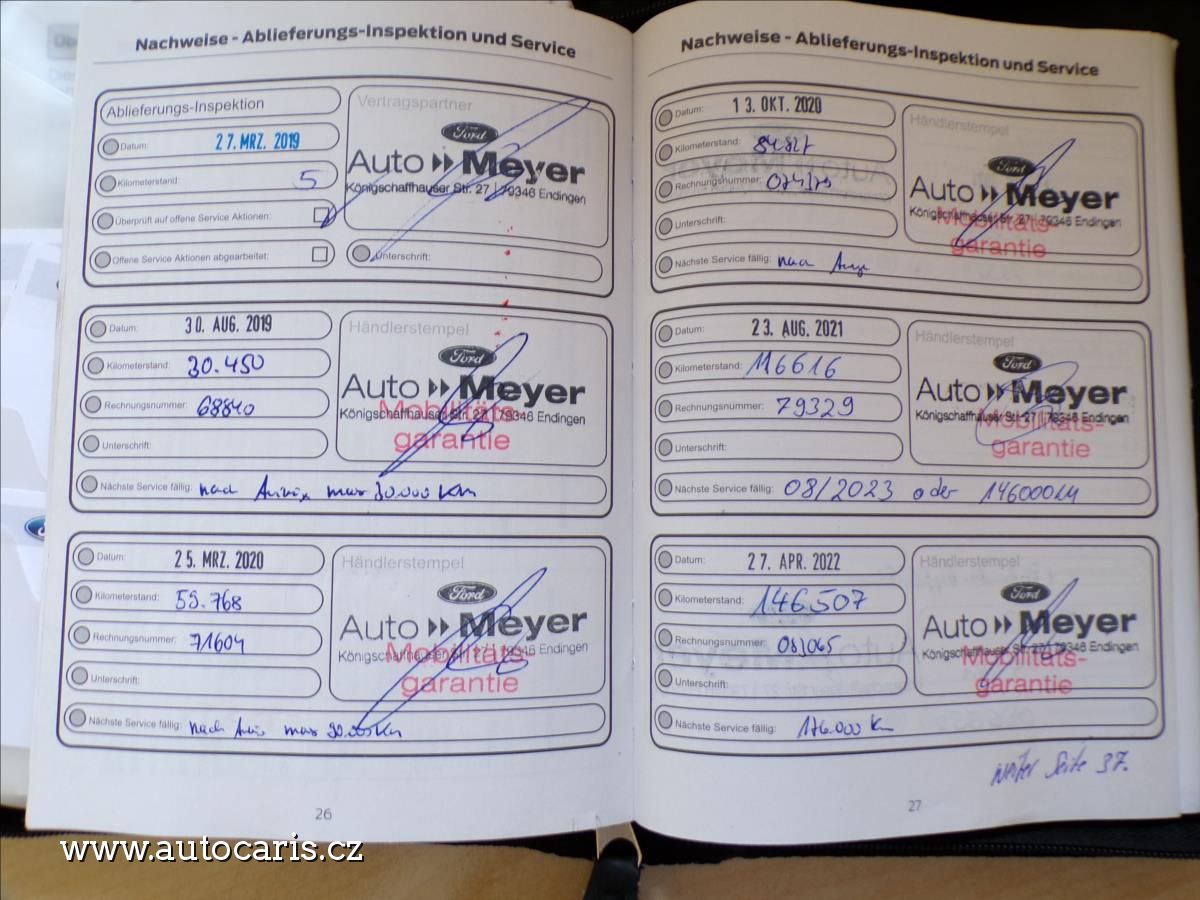 Nachweise - Ablieferungs-Inspektion und Service
Ablieferungs-Inspektion
Datum: 27. MRZ. 2019
Kilometerstand: 5
Überprüft auf offene Service Aktionen:
Offene Service Aktionen abgearbeitet:
Vertragspartner
Ford
Auto Meyer
Königschaffhauser Str. 27 | 79346 Endingen
Unterschrift:
Datum: 30. AUG. 2019
Kilometerstand: 30.450
Rechnungsnummer: 68840
Unterschrift:
Nächste Service fällig: nach max 30.000 km
Händlerstempel
Ford
Auto Meyer
Königschaffhauser Str. 27 | 79346 Endingen
Mobilitäts-
garantie
Datum: 25. MRZ. 2020
Kilometerstand: 59.768
Rechnungsnummer: 71604
Unterschrift:
Nächste Service fällig: nach max 30.000 km
Händlerstempel
Ford
Auto Meyer
Königschaffhauser Str. 27 | 79346 Endingen
Mobilitäts-
garantie
26
Nachweise - Ablieferungs-Inspektion und Service
Datum: 13. OKT. 2020
Kilometerstand:
Rechnungsnummer:
Unterschrift:
Nächste Service fällig: nach
Händlerstempel
Ford
Auto Meyer
Königschaffhauser Str. 27 | 79346 Endingen
Mobilitäts-
garantie
Datum: 23. AUG. 2021
Kilometerstand: 116616
Rechnungsnummer: 79329
Unterschrift:
Nächste Service fällig: 08/2023 oder 146000 km
Händlerstempel
Ford
Auto Meyer
Königschaffhauser Str. 27 | 79346 Endingen
Mobilitäts-
garantie
Datum: 27. APR. 2022
Kilometerstand: 146.507
Rechnungsnummer: 081065
Unterschrift:
Nächste Service fällig: 176.000 km
Händlerstempel
Ford
Auto Meyer
Königschaffhauser Str. 27 | 79346 Endingen
Mobilitäts-
garantie
weiter Seite 37.
27
www.autocaris.cz